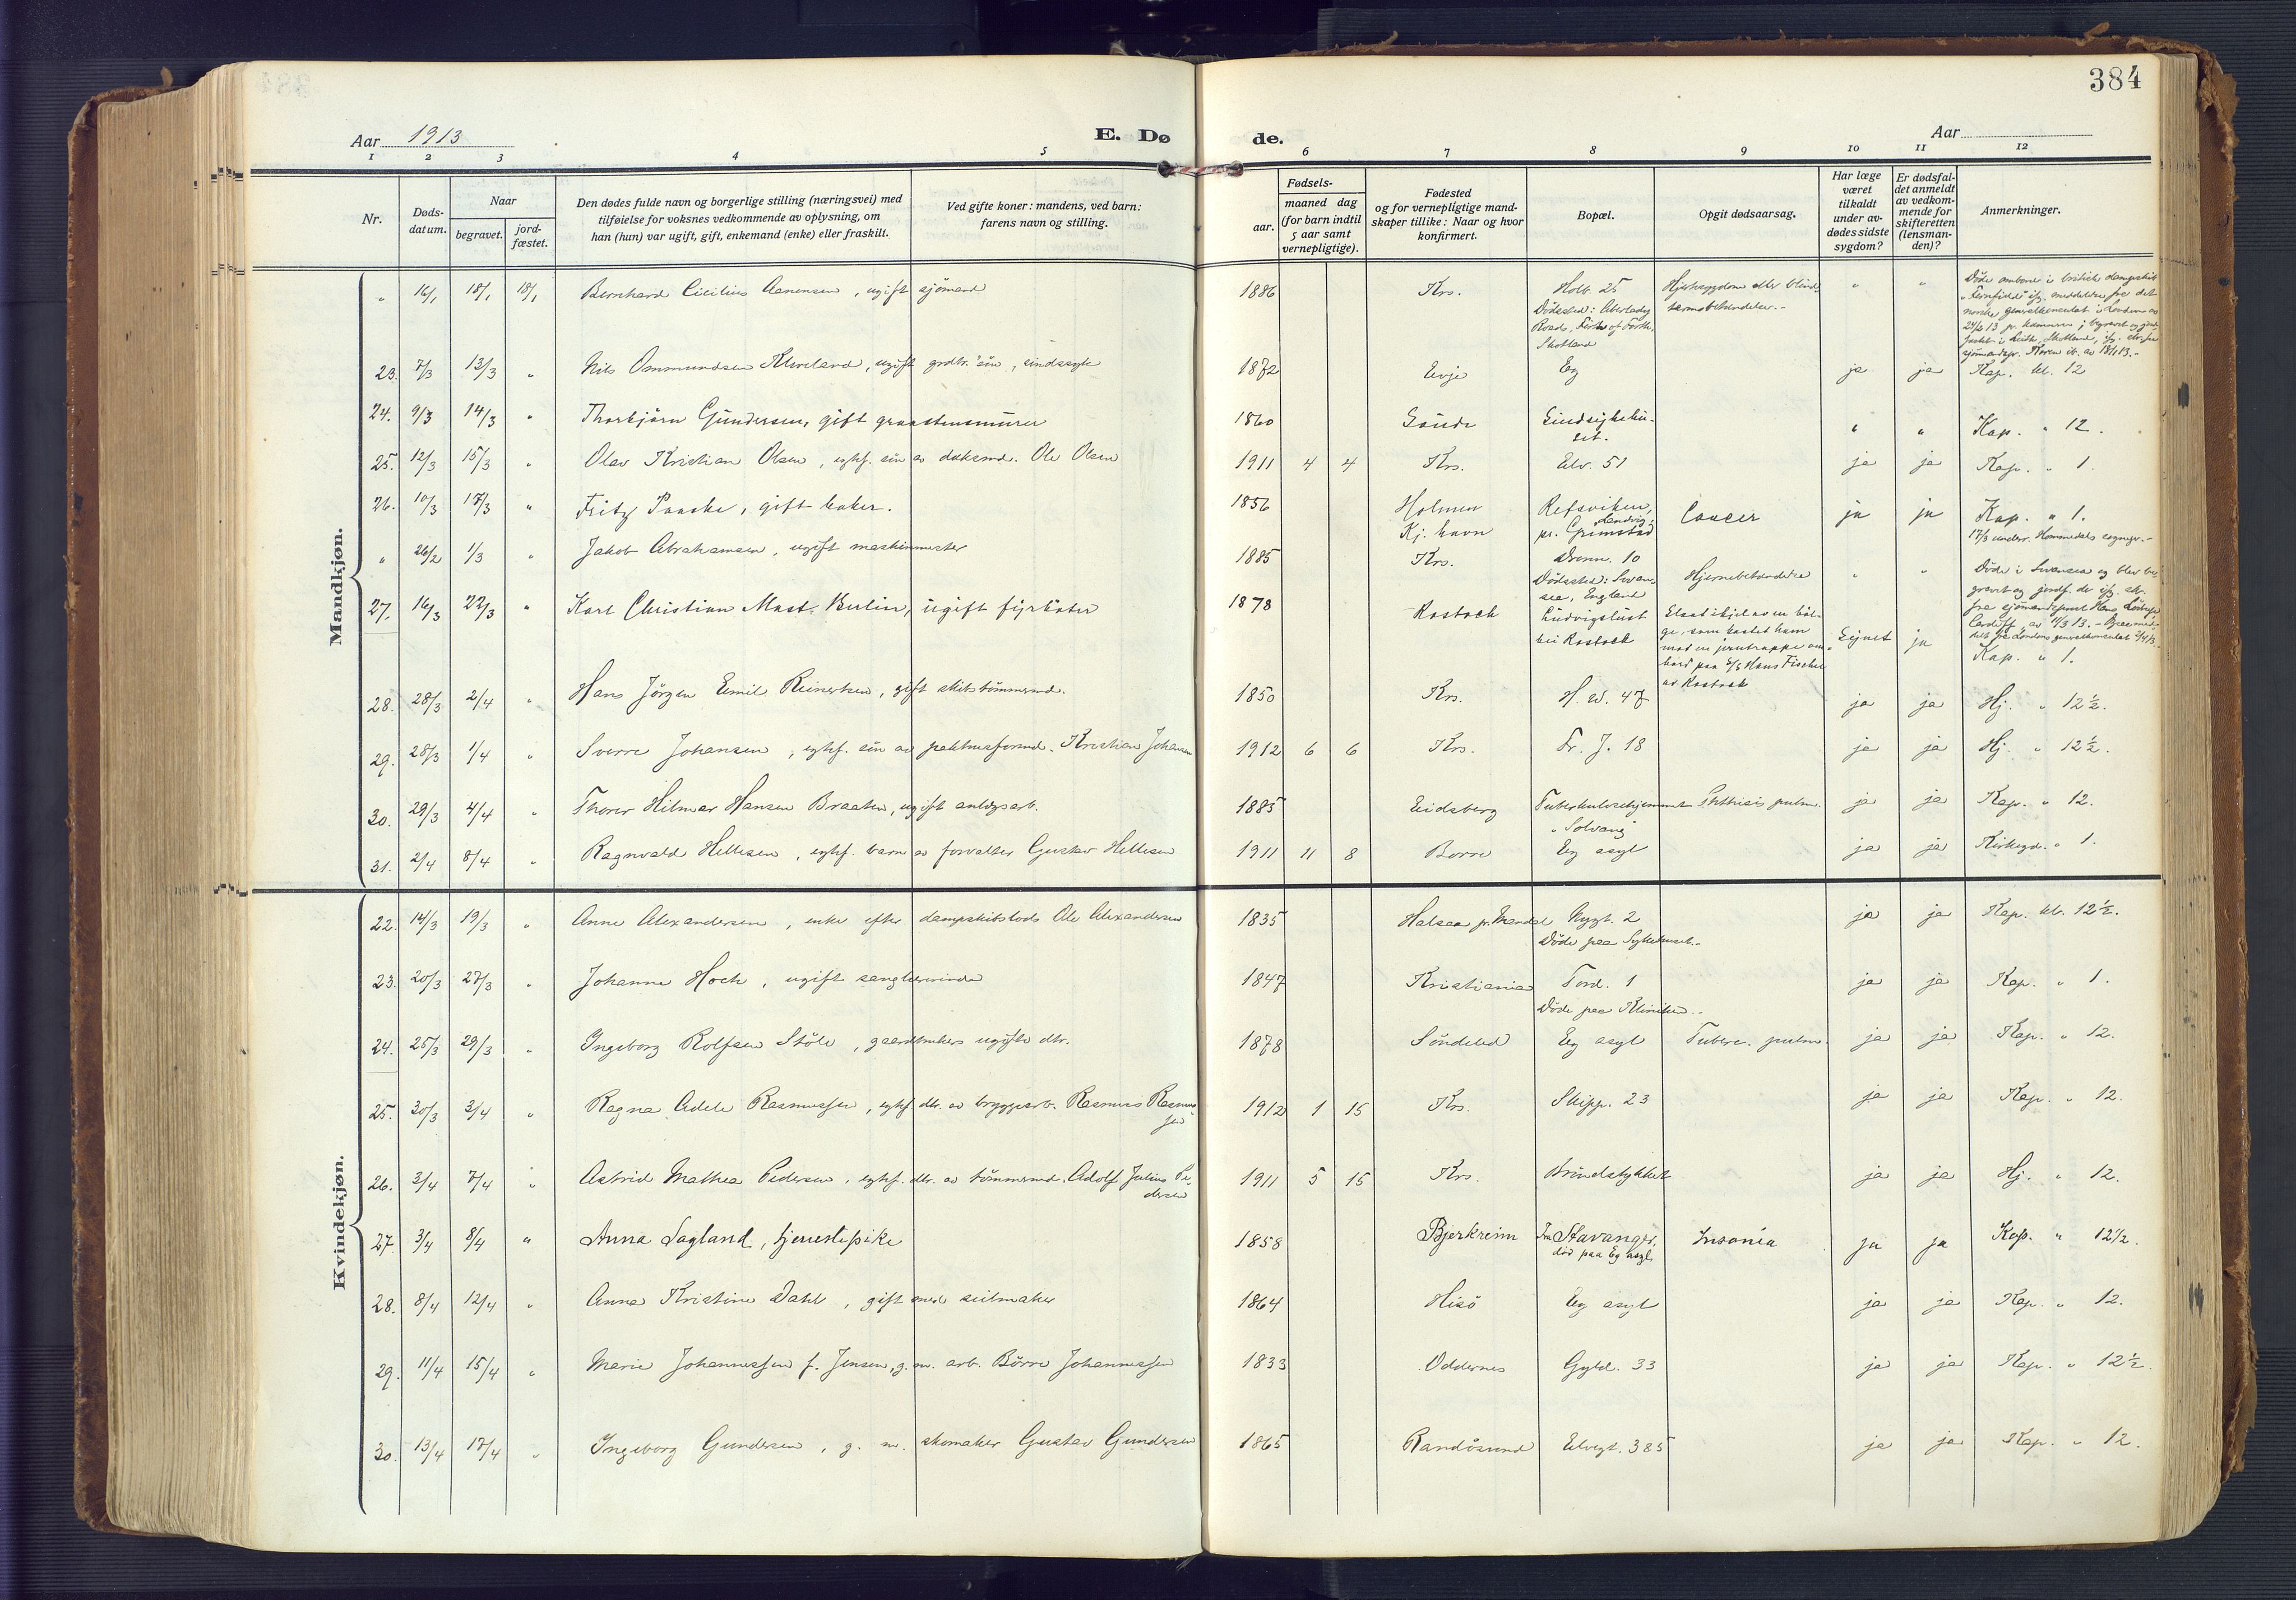 384
Aar 1913
E. Dø
de.
Aar
1 2 3 4 5 6 7 8 9 10 11 12
Nr.
Døds-
datum.
Naar
begravet.
jord-
fæstet.
Den dødes fulde navn og borgerlige stilling (næringsvei) med
tilføielse for voksnes vedkommende av oplysning, om
han (hun) var ugift, gift, enkemand (enke) eller fraskilt.
Ved gifte koner: mandens, ved barn:
farens navn og stilling.
Fødsels-
aar.
maaned dag
(for barn indtil
5 aar samt
vernepligtige).
Fødested
og for vernepligtige mand-
skaper tillike: Naar og hvor
konfirmert.
Bopæl.
Opgit dødsaarsag.
Har læge
været
tilkaldt
under av-
dødes sidste
sygdom?
Er dødsfal-
det anmeldt
av vedkom-
mende for
skifteretten
(lensman-
den)?
Anmerkninger.
Mandkjøn.
" 16/1 18/1 18/1 Bernhard Cicilius Aanensen, ugift sjømand 1886 Krs. Holb. 25 Hjertesygdom eller blind- " "
Dødssted: Aberlady
Roads, Firth of Forth,
Skotland
23. 7/3 13/3 " Nils Ommundsen Kleveland, ugift grdbr. søn, sindssyk 1872 Evje Eg ja ja Kap. kl. 12
24. 9/3 14/3 " Thorbjørn Gundersen, gift graastensmurer 1860 Saude Sindsykehu-
set. " " Kap. " 12.
25. 12/3 15/3 " Olav Kristian Olsen, egtef. søn av dæksmd. Ole Olsen 1911 4 4 Krs. Elv. 51 ja ja Kap. " 1.
26. 10/3 17/3 " Fritz Paaske, gift baker. 1856 Holmen
Kj.havn Refsviken,
Landvig
pr. Grimstad Cancer ja ja Kap. " 1.
17/3 underr. Hommedals sognepr.-
" 26/2 1/3 " Jakob Abrahamsen, ugift maskinmester 1885 Krs. Dronn. 10
Dødssted: Swan-
sea, England Hjernebetændelse " " Døde i Swansea og blev be-
27. 16/3 22/3 " Karl Christian Mart. Bulin, ugift fyrbøter 1878 Rostock Ludvigslust
bei Rostock Slaat ihjel av en bøl-
ge, som kastet ham
mod en jerntrappe om-
bord paa S/S Hans Fischer
av Rostock Eynet ja Kap. " 1.
28. 28/3 2/4 " Hans Jørgen Emil Reinertsen, gift skibstømmermd. 1850 Krs. H. ed. 47 ja ja Hj. " 12½.
29. 28/3 1/4 " Sverre Johansen, egtef. søn av pakhusformd. Kristian Johansen 1912 6 6 Krs. Fr. J. 18 ja ja Hj. " 12½.
30. 29/3 4/4 " Thorer Hilmar Hansen Braaten, ugift anlægsarb. 1885 Eidsberg Tuberkulosehjemmet
"Solvang" Phthisis pulm. ja ja Kap. " 12.
31. 2/4 8/4 " Ragnvald Hellesen, egtef. barn av forvalter Gustav Hellesen 1911 11 8 Borre Eg asyl ja ja Kirkegd. " 1.
Kvindekjøn.
22. 14/3 19/3 " Anne Alexandersen, enke efter dampskibslods Ole Alexandersen 1835 Halsaa pr. Mandal Nygt. 2
Døde paa Sykehuset.- ja ja Kap. kl. 12½.
23. 20/3 27/3 " Johanne Hoch, ugift sanglærerinde 1847 Kristiania Tord. 1
Døde paa Kliniken.- ja ja Kap. " 1.
24. 25/3 29/3 " Ingeborg Rolfsen Støle, gaardbrukers ugifte dtr. 1878 Søndeled Eg asyl Tuberc. pulm. ja ja Kap. " 12.
25. 30/3 3/4 " Ragna Adele Rasmussen, egtef. dtr. av bryggearb. Rasmus Rasmus-
sen 1912 1 15 Krs. Skipp. 23 ja ja Kap. " 12.
26. 3/4 7/4 " Astrid Mathea Pedersen, egtef. dtr. av tømmermd. Adolf Julius Pe-
dersen 1911 5 15 Krs. Grundstykket ja ja Hj. " 12.
27. 3/4 8/4 " Anna Sagland, tjenestepike 1858 Bjerkreim Fra Stavanger,
død paa Eg asyl Insania ja ja Kap. " 12½.
28. 8/4 12/4 " Anna Kristine Dahl, gift med seilmaker 1864 Hisø Eg asyl ja ja Kap. " 12.
29. 11/4 15/4 " Marie Johannessen f. Jensen, g. m. arb. Børre Johannessen 1833 Oddernes Gyld. 33 ja ja Kap. " 12½.
30. 13/4 17/4 " Ingeborg Gundersen, g. m. skomaker Gustav Gundersen 1865 Randøsund Elvegt. 385 ja ja Kap. " 12.